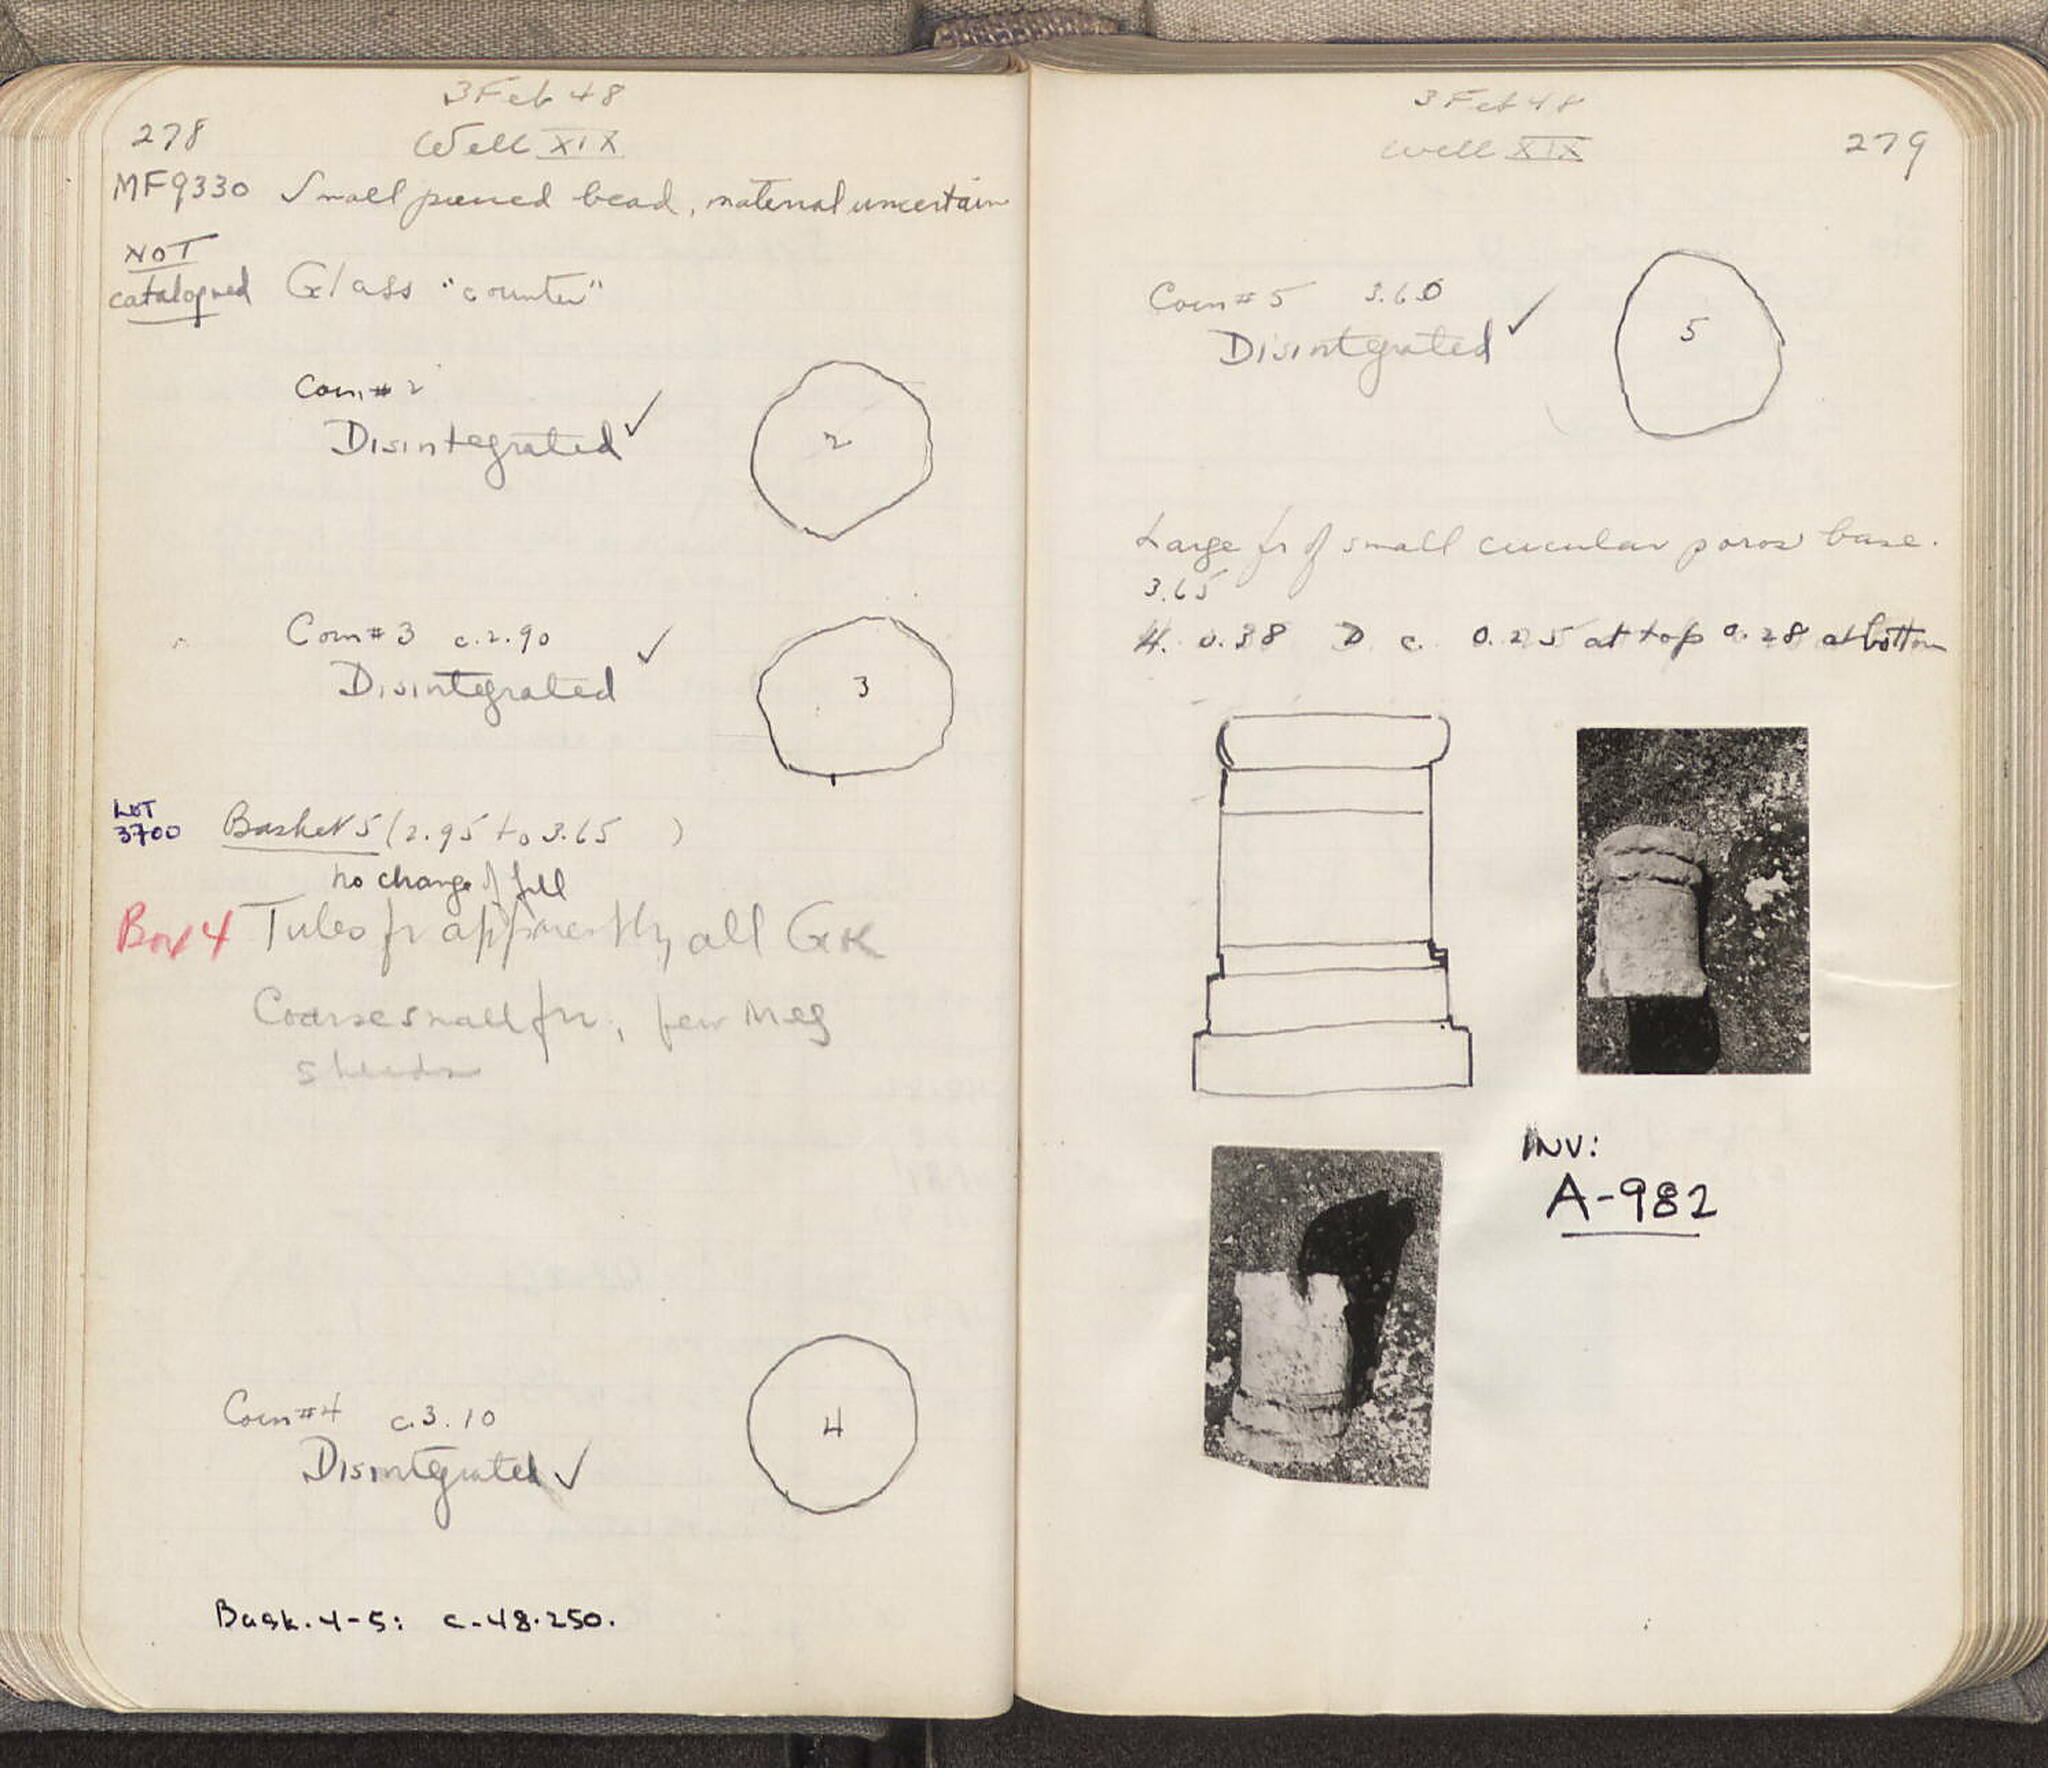 3 Feb 48
278
Well XIX
MF9330 Small pierced bead, material uncertain
NOT
catalogued
Glass "counter"
Coin #2
Disintegrated ✓
2
Coin #3 c. 2.90
Disintegrated ✓
3
LOT
3700
Basket 5 (2.95 to 3.65 )
no change of fill
Box 4
Tubes fr apparently all Gk
Coarse small frr, few Meg
sherds
Coin #4 c. 3.10
Disintegrated ✓
4
Bask. 4-5: c-48-250.
3 Feb 48
Well XIX
279
Coin #5 3.60
Disintegrated ✓
5
Large fr of small circular poros base.
3.65
H. 0.38 D. c. 0.25 at top 0.28 at bottom
INV:
A-982